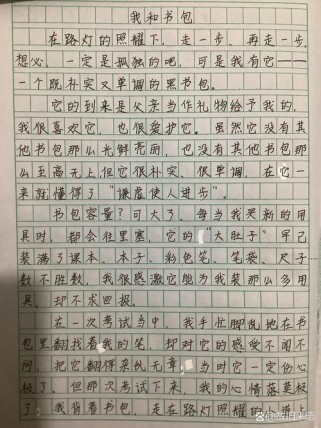 我和书包
在路灯的照耀下，走一步、再走一步，
想必，一定是孤独的吧，可是我有它——
一个既朴实又单调的黑书包。
它的到来是父亲当作礼物给予我的，
我很喜欢它，也很爱护它。虽然它没有其
他书包那么光鲜亮丽，也没有其他书包那
么至高无上但它很朴实、很单调，在它一
来就懂得了“谦虚使人进步”。
书包容量？可大了，每当我买新的用
具时，都会往里塞，它的“大肚子”早已
装满了课本、本子、彩色笔、笔袋、尺子
数不胜数，我很感激它能为我装那么多用
具，却不求回报。
在一次考试当中，我手忙脚乱地在书
包里翻找着我的笔，却对它的感受不闻不
问，把它翻得杂乱无章，当时它一定伤心
极了。但那次考试下来，我的心情落莫极
了，我背着书包，走在路灯照耀的